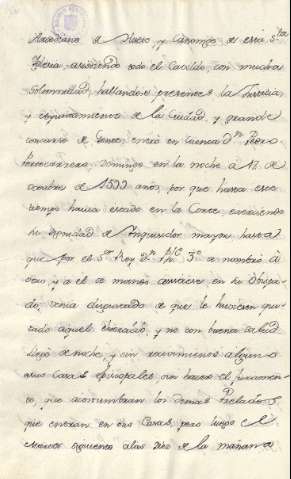 de Huete, y Canonigo de esta S.ta
Iglesia asistiendo todo el Cavildo, con mucha
Solemnidad, hallandose presentes la Justicia
y Ayuntamiento de la Ciudad, y grande
concurso de Gente, entró en Cuenca D.n Pedro
Portocarrero, Domingo en la noche a 17 de
Octubre de 1599 años, por que hasta este
tiempo havia estado en la Corte exerciendo
su Dignidad de Inquisidor mayor hasta
que por el S.or Rey D.n Ph.e 3.o se nombró á
otro, y a el se mandó asistiese en su Obispa-
do, venia disgustado de que le huviesen qui-
tado aquel y no con buena salud
llegó de noche, y sin recivimiento alguno
a sus Casas Episcopales, sin hacer el juramen-
to, que acostumbran los demas Prelados
que entran en sus Casas, pero luego el
siguiente a las diez de la mañana